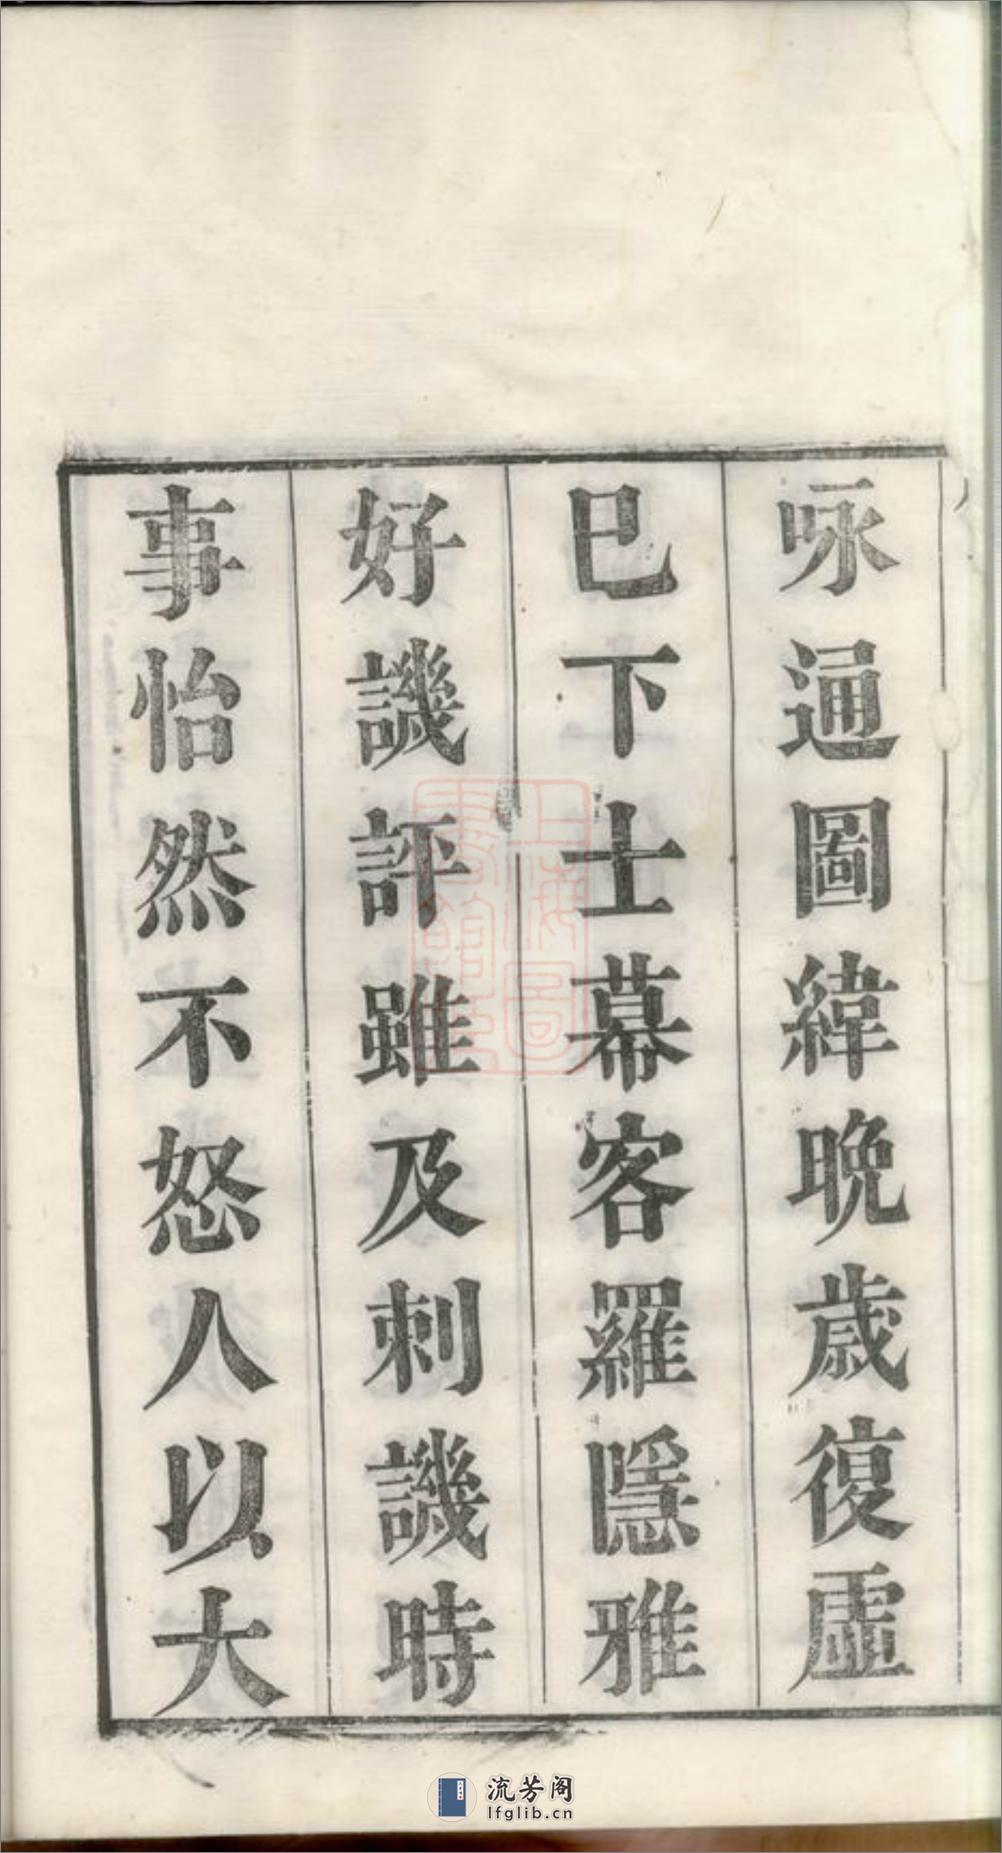 咏通圖緯晚歲復虛
巳下士幕客羅隱雅
好譏評雖及刺譏時
事怡然不怒人以大
上海圖
書館藏
流芳阁
lfglib.cn